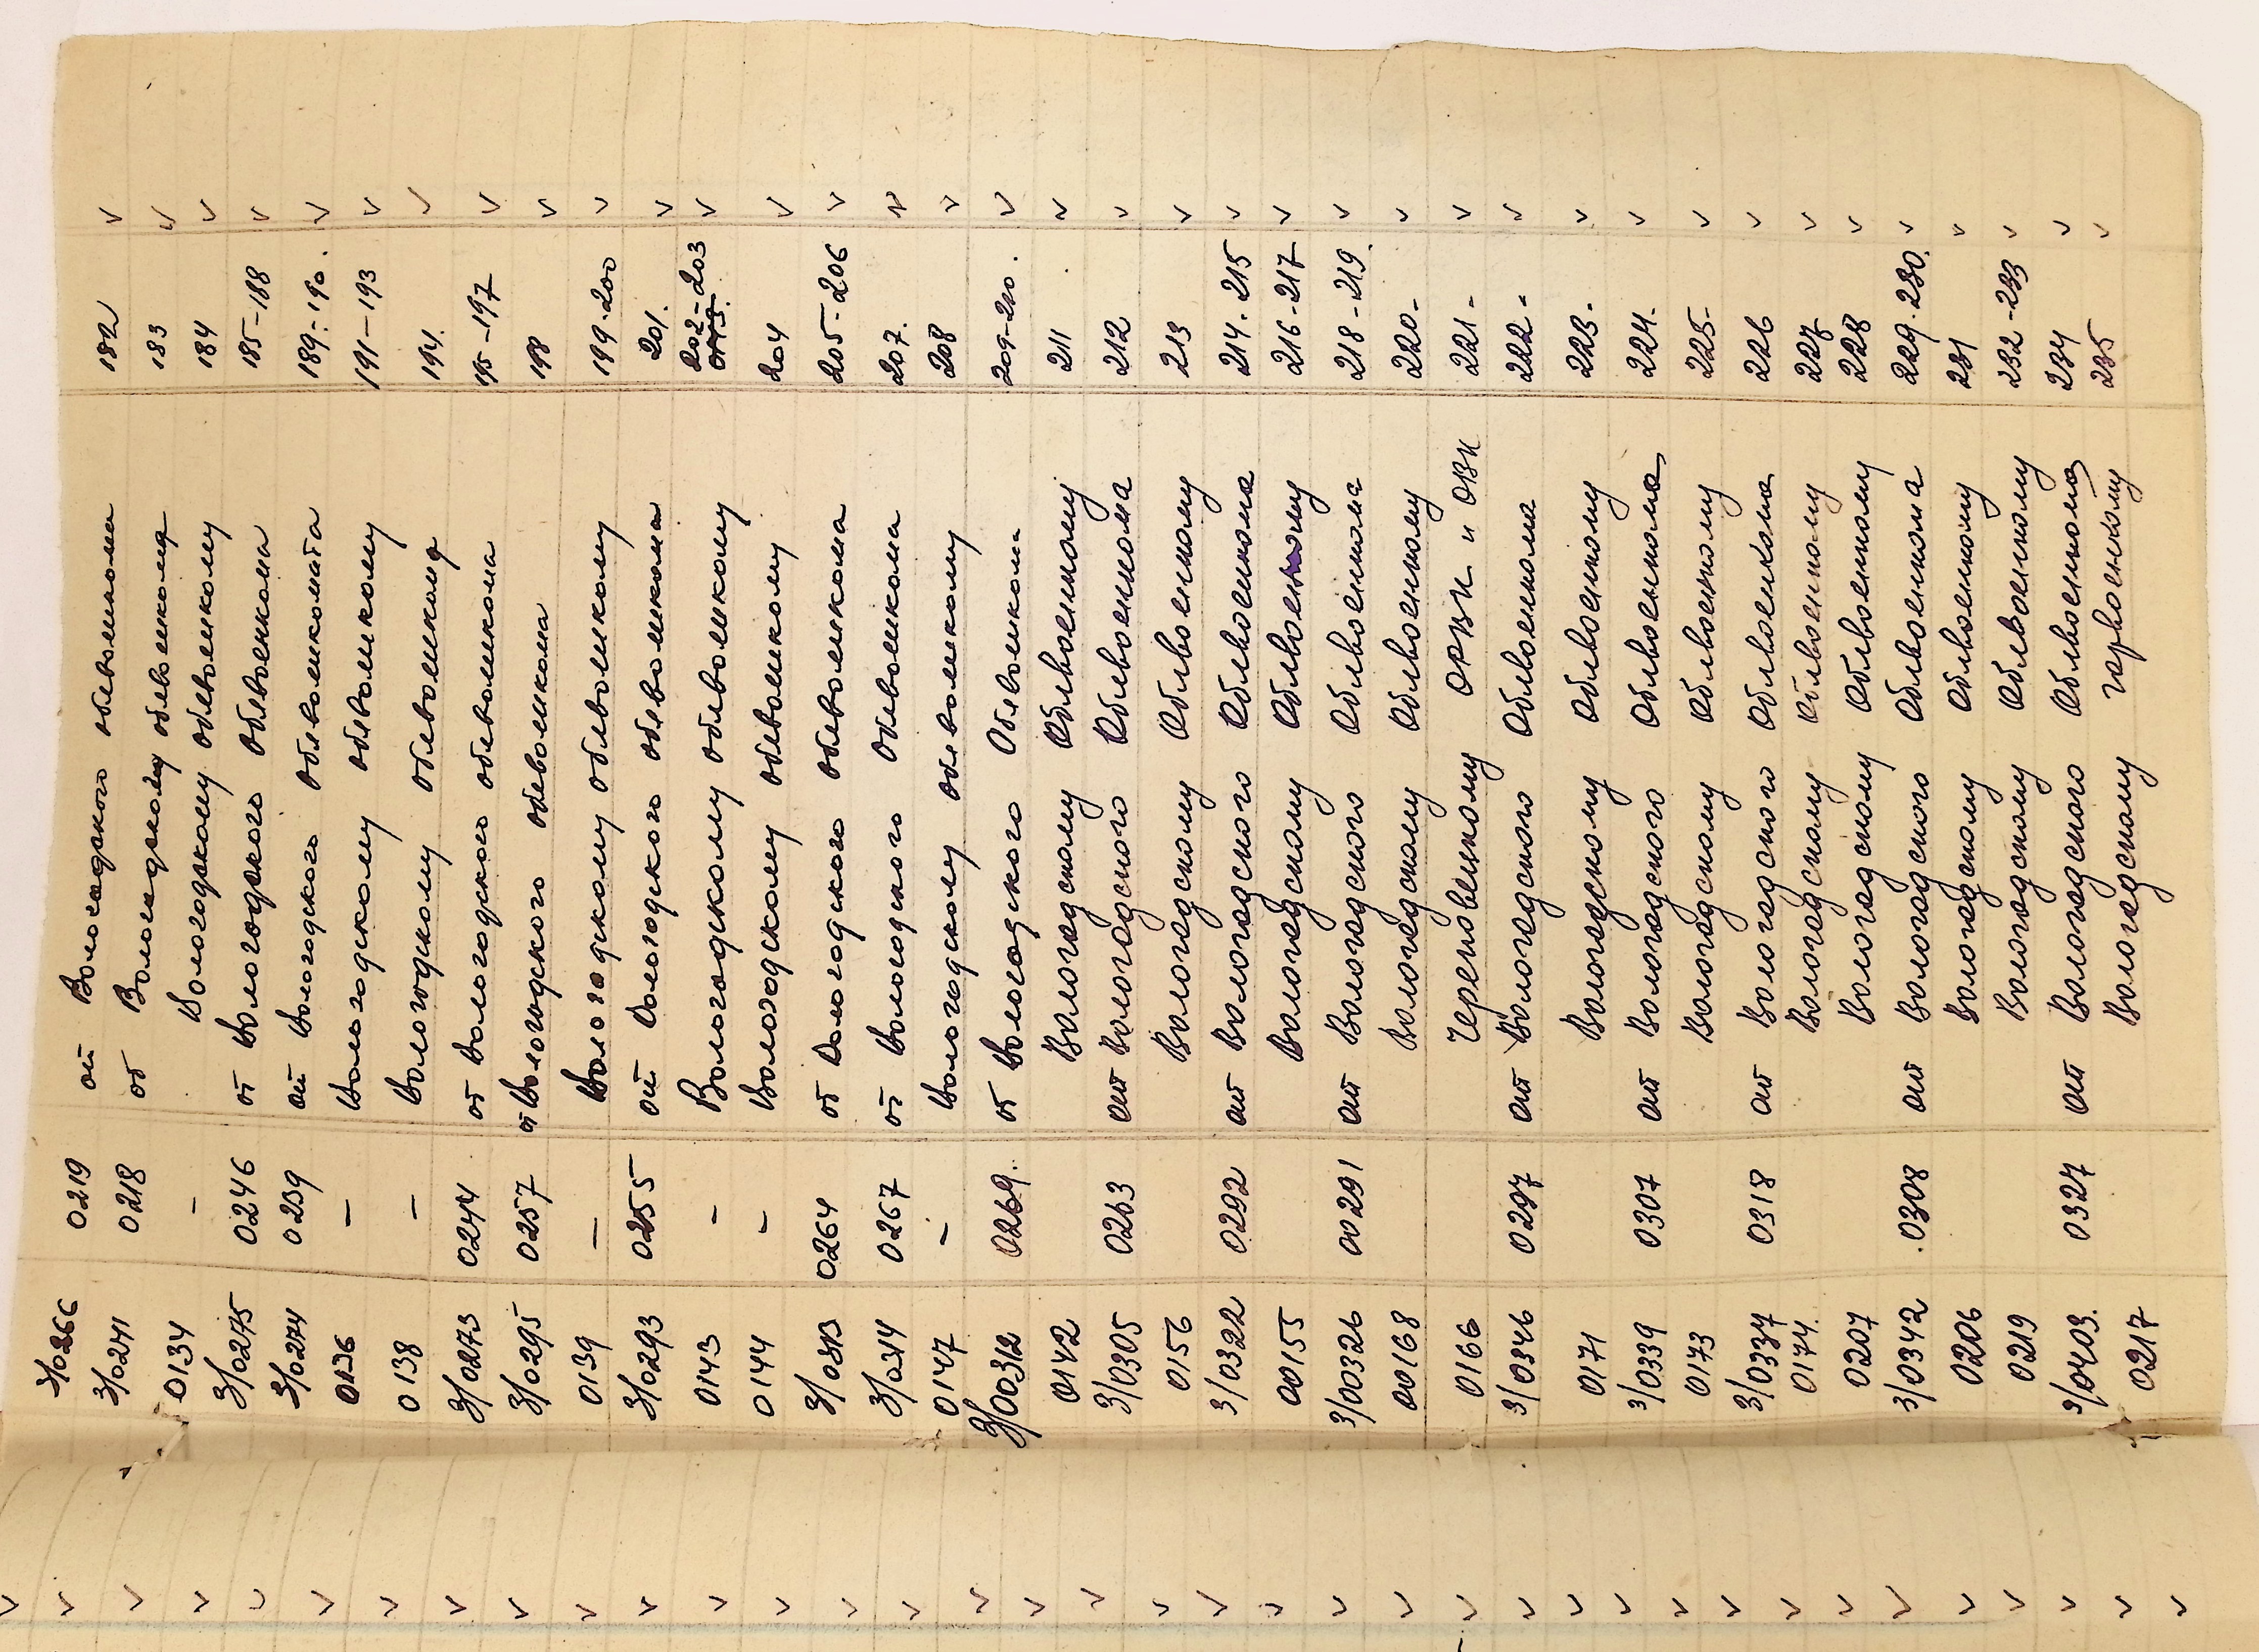 3/0266 0219 от Вологодского облвоенкома 182 v
3/0241 0218 от Вологодскому облвоенкома 183 v
0134 - Вологодскому облвоенкому 184 v
3/0275 0246 от Вологодского облвоенкома 185-188 v
3/0274 0239 от Вологодского облвоенкомата 189-190. v
0136 - Вологодскому облвоенкому 191-193 v
0138 - Вологодскому облвоенкома 194. v
3/0273 0244 от Вологодского облвоенкома 195-197 v
3/0295 0257 от Вологодского облвоенкома 198 v
0139 - Вологодскому облвоенкому 199-200 v
3/0293 0255 от Вологодского облвоенкома 201. v
0143 - Вологодскому облвоенкому 202-203 v
0144 - Вологодскому облвоенкому 204 v
3/0313 0264 от Вологодского облвоенкома 205-206 v
3/0314 0267 от Вологодского Облвоенкома 207. v
0147 - Вологодскому облвоенкому 208 v
3/00312 0269. от Вологодского Облвоенкома 209-210. v
0142 Вологодскому Облвоенкому 211 v
3/0305 0263 от Вологодского Облвоенкома 212 v
0156 Вологодскому Облвоенкому 213 v
3/0322 0292 от Вологодского Облвоенкома 214-215 v
00155 Вологодскому Облвоенкому 216-217 v
3/00326 00291 от Вологодского Облвоенкома 218-219. v
00168 Вологодскому Облвоенкому 220- v
0166 Череповецкому ОРВК и ОВК 221- v
3/0346 0297 от Вологодского Облвоенкома 222- v
0171 Вологодскому Облвоенкому 223- v
3/0339 0307 от Вологодского Облвоенкома 224- v
0173 Вологодскому Облвоенкому 225- v
3/0337 0318 от Вологодского Облвоенкома 226 v
0174. Вологодскому Облвоенкому 227 v
0207 Вологодскому Облвоенкому 228 v
3/0342 .0308 от Вологодского Облвоенкома 229-230. v
0206 Вологодскому Облвоенкому 231 v
0219 Вологодскому Облвоенкому 232-233 v
3/0403. 0327 от Вологодского Облвоенкома 234 v
0217 Вологодскому 235 v